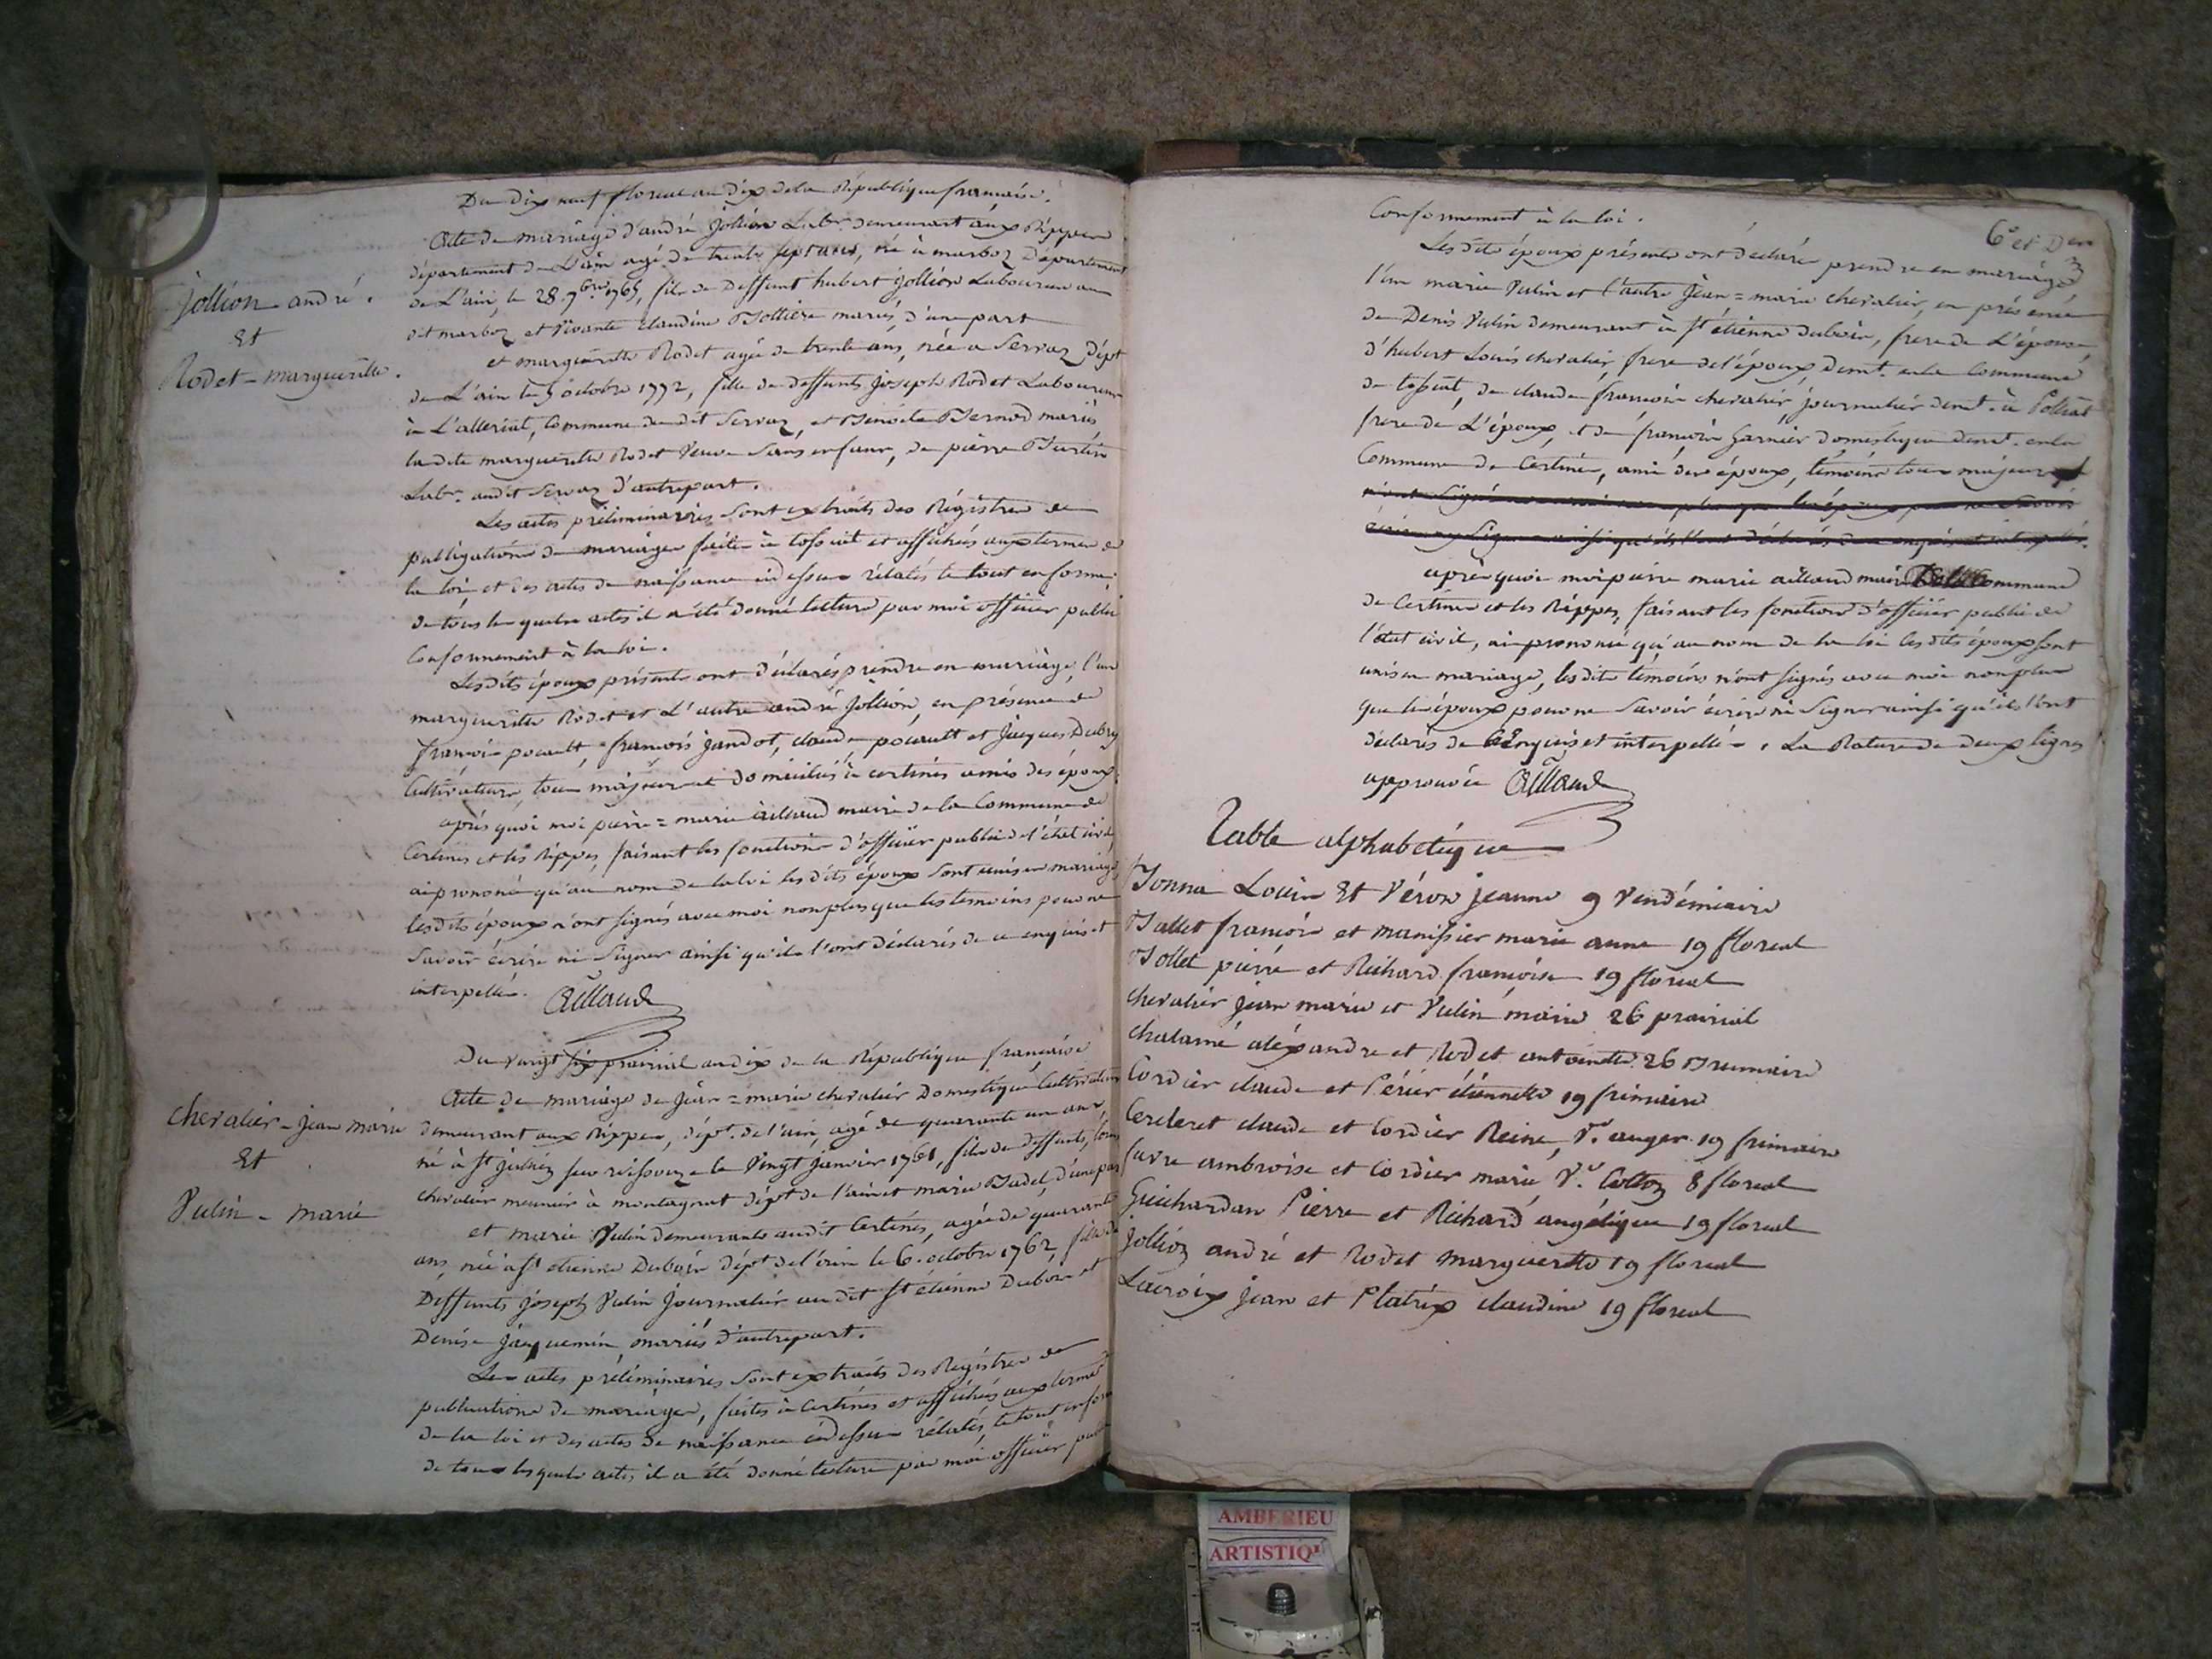 Du dix neuf floreal an dix de la République française.
Jollion andré.
Et
Rodet = marguerite.
Acte de mariage d'andré Jollion Labr. demeurant aux Rippes
département de L'ain agé de trente sept ans, né à marboz Département
de L'ain, le 28. 7bre 1765, fils de deffunt hubert Jollion Laboureur au
dit marboz et vivante Claudine mariés, d'une part
et margueritte Rodet agée de trente ans, née a Servaz Dépt
de L'ain le 5 octobre 1772, fille de deffunts joseph Rodet Laboureur
à L'alleriat, Commune du dit Servaz, et Benoite Bernod mariés
la dite margueritte Rodet Veuve Sans enfans, de pierre Burtin
Labr. audit Servaz d'autrepart.
Les actes préliminaires Sont extraits des Régistres de
publications de mariages faites à tossiat et affichées aux termes de
la loi, et des actes de naissance cidessus rélatés le tout en forme;
de tous les quels actes il a été donné lecture par moi officier public
Conformement à la loi.
Lesdits époux présents ont déclarés prendre en mariage, l'un
margueritte Rodet et L'autre andré Jollion, en présence de
françois pocault, françois jandot, claude pocault et jacques Dubry
Cultivateurs, tous majeurs et domiciliés à certines amis des époux.
après quoi moi pierre = marie aillaud maire de la Commune de
Certines et les Rippes, faisant les fonctions d'officier public de l'état civil,
ai prononcé qu'au nom de la loi les dits époux Sont unis en mariage,
lesdits époux n'ont signés avec moi nonplus que les temoins pour ne
Savoir écrire ni Signer ainsi qu'ils l'ont déclarés de ce enquis et
interpellés. Aillaud
Chevalier = jean marie
Et
Vulin = marie
Du vingt six prairial an dix de la République française
Acte de mariage de jean = marie chevalier Domestique Cultivateur
demeurant aux Rippes, dépt. de l'ain, agé de quarante un ans,
né à St julien sur reissouze le Vingt janvier 1761, fils de deffunts, Louis
chevalier meunier à montagnat dépt de l'ain et marie Badel, d'une part
et marie Vulin demeurante audit Certines, agée de quarante
ans, née à St etienne Dubois dépt de l'ain le 6. octobre 1762, fille de
Deffunts joseph Vulin journalier au dit St étienne Dubois et
Denise jacquemin mariés d'autrepart.
Les actes préliminaires Sont extraits des Régistres de
publications de mariages, faites à certines et affichées aux termes
de la loi et des actes de naissance cidessus rélatés, le tout en forme
de tous lesquels actes, il a été donné lecture par moi officier public
6e et Der
Conformement à la loi.
Les dits époux présents ont déclaré prendre en mariage
l'un marie Vulin et l'autre Jean = marie chevalier, en présence
de Denis Vulin demeurant à St étienne dubois, frere de L'épouse,
d'hubert Louis chevalier, frere de l'époux, demt. en la Commune
de tossiat, de claude françois chevalier, journalier demt. à Polliat
frere de L'époux, et de françois Garnier domestique demt. en la
Commune de Certines, ami des époux, témoins tous majeurs
après quoi moi pierre marie aillaud maire De la Commune
de Certines et les Rippes, faisant les fonctions d'officier public de
l'état civil, ai prononcé qu'au nom de la loi les dits époux sont
unis en mariage, les dits témoins n'ont signés avec moi nonplus
que les époux pour ne Savoir écrire ni Signer ainsi qu'ils l'ont
déclarés de ce enquis et interpellé =. La Rature de deux lignes
approuvée Aillaud
Table alphabetique
Bonna Louis Et Véron jeanne 9 Vendémiaire
Ballet françois et manissier marie anne 19 floreal
Bollet pierre et Richard françoise 19 floreal
chevalier jean marie et Vulin marie 26 prairial
chalamé aléxandre et Rodet antoinette 26 Brumaire
Cordier claude et Périer étiennette 19 frimaire
Cerderet claude et Cordier Reine, Ve. auger 19 frimaire
favre ambroise et Cordier marie Ve. Cotton 8 floreal
Guichardan Pierre et Richard angélique 19 floreal
Jollion andré et Rodet margueritte 19 floreal
Lacroix jean et Platrix claudine 19 floreal
AMBERIEU
ARTISTIQ